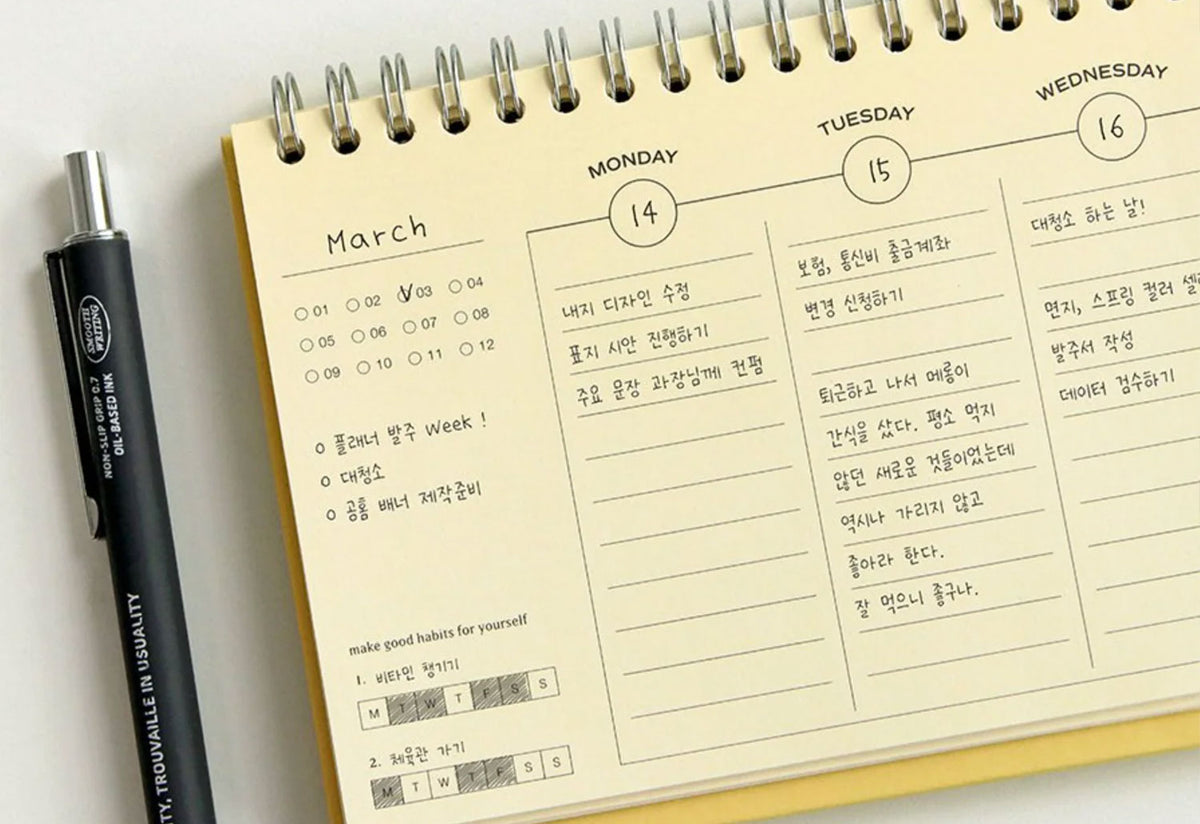 March
01 02 03 04
05 06 07 08
09 10 11 12
플래너 발주 Week !
대청소
공홈 배너 제작준비
make good habits for yourself
1. 비타민 챙기기
M T W T F S S
2. 체육관 가기
M T W T F S S
MONDAY
14
내지 디자인 수정
표지 시안 진행하기
주요 문장 과장님께 컨펌
TUESDAY
15
보험, 통신비 출금계좌
변경 신청하기
퇴근하고 나서 메롱이
간식을 샀다. 평소 먹지
않던 새로운 것들이었는데
역시나 가리지 않고
좋아라 한다.
잘 먹으니 좋구나.
WEDNESDAY
16
대청소 하는 날!
면지, 스프링 컬러 셀렉
발주서 작성
데이터 검수하기
SMOOTH
WRITING
NON-SLIP GRIP 0.7
OIL-BASED INK
TY, TROUVAILLE IN USUALITY